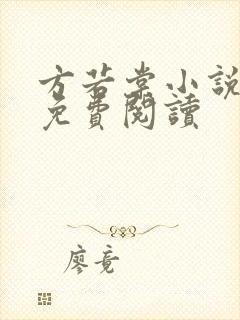 方若棠小說
免費閱讀
廖竟